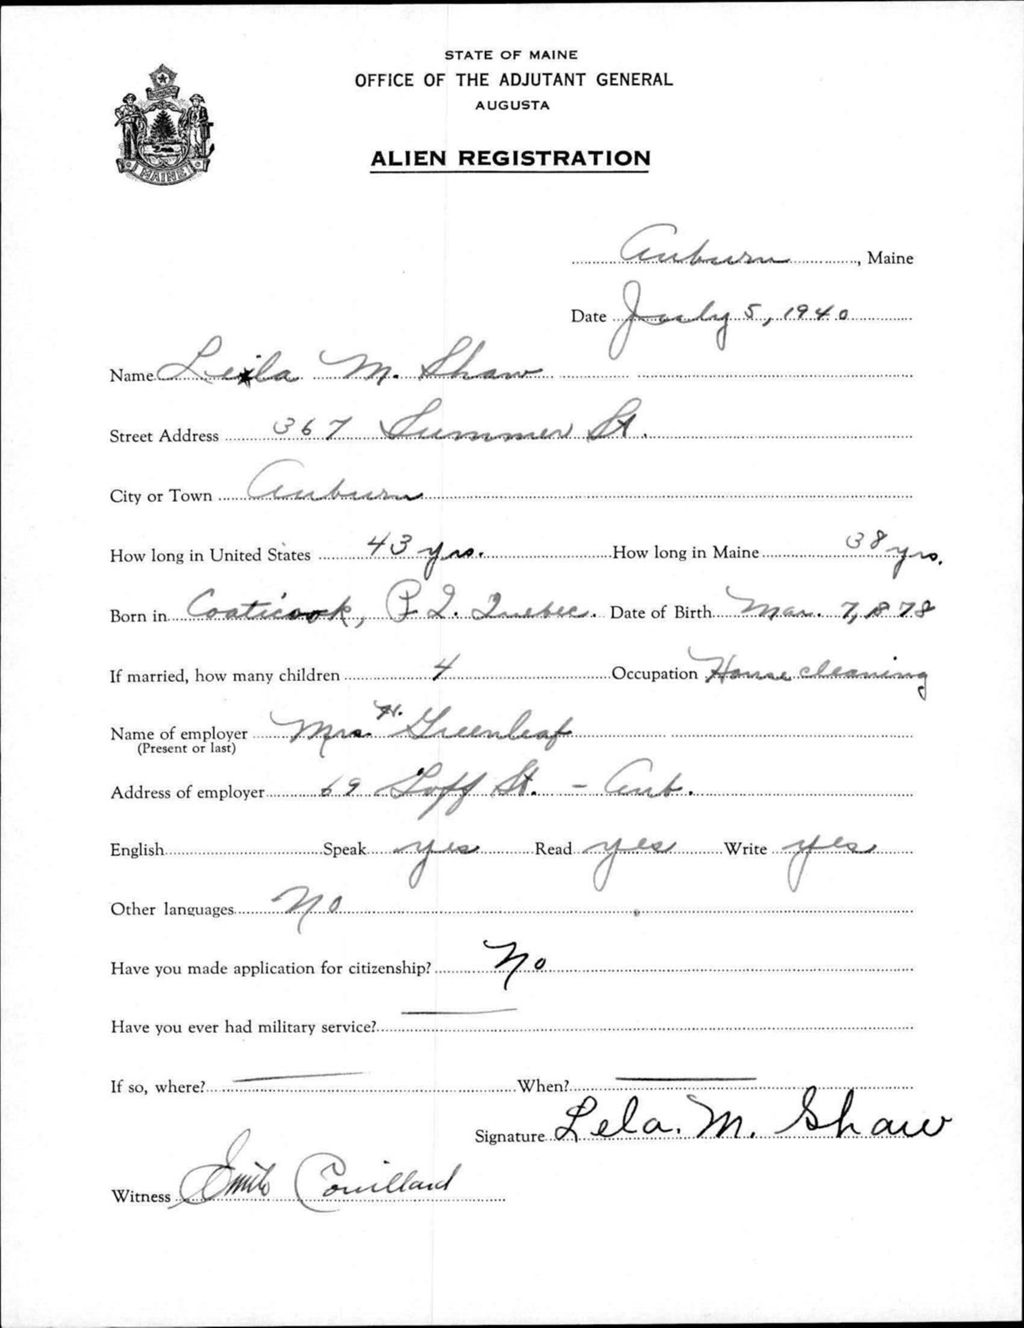 STATE OF MAINE
OFFICE OF THE ADJUTANT GENERAL
AUGUSTA
MAINE
ALIEN REGISTRATION
Auburn, Maine
Date July 5, 1940
Name Leila M. Shaw
Street Address 367 Summer St.
City or Town Auburn
How long in United States 43 yrs. How long in Maine 38 yrs.
Born in Coaticook, P.Q. Quebec. Date of Birth Mar. 7, 1878
If married, how many children 4 Occupation House cleaning
Name of employer Mrs. H. Greenleaf
(Present or last)
Address of employer 69 Goff St. - Aub.
English Speak yes Read yes Write yes
Other languages No
Have you made application for citizenship? No
Have you ever had military service?
If so, where? When?
Signature Lela. M. Shaw
Witness Couillard